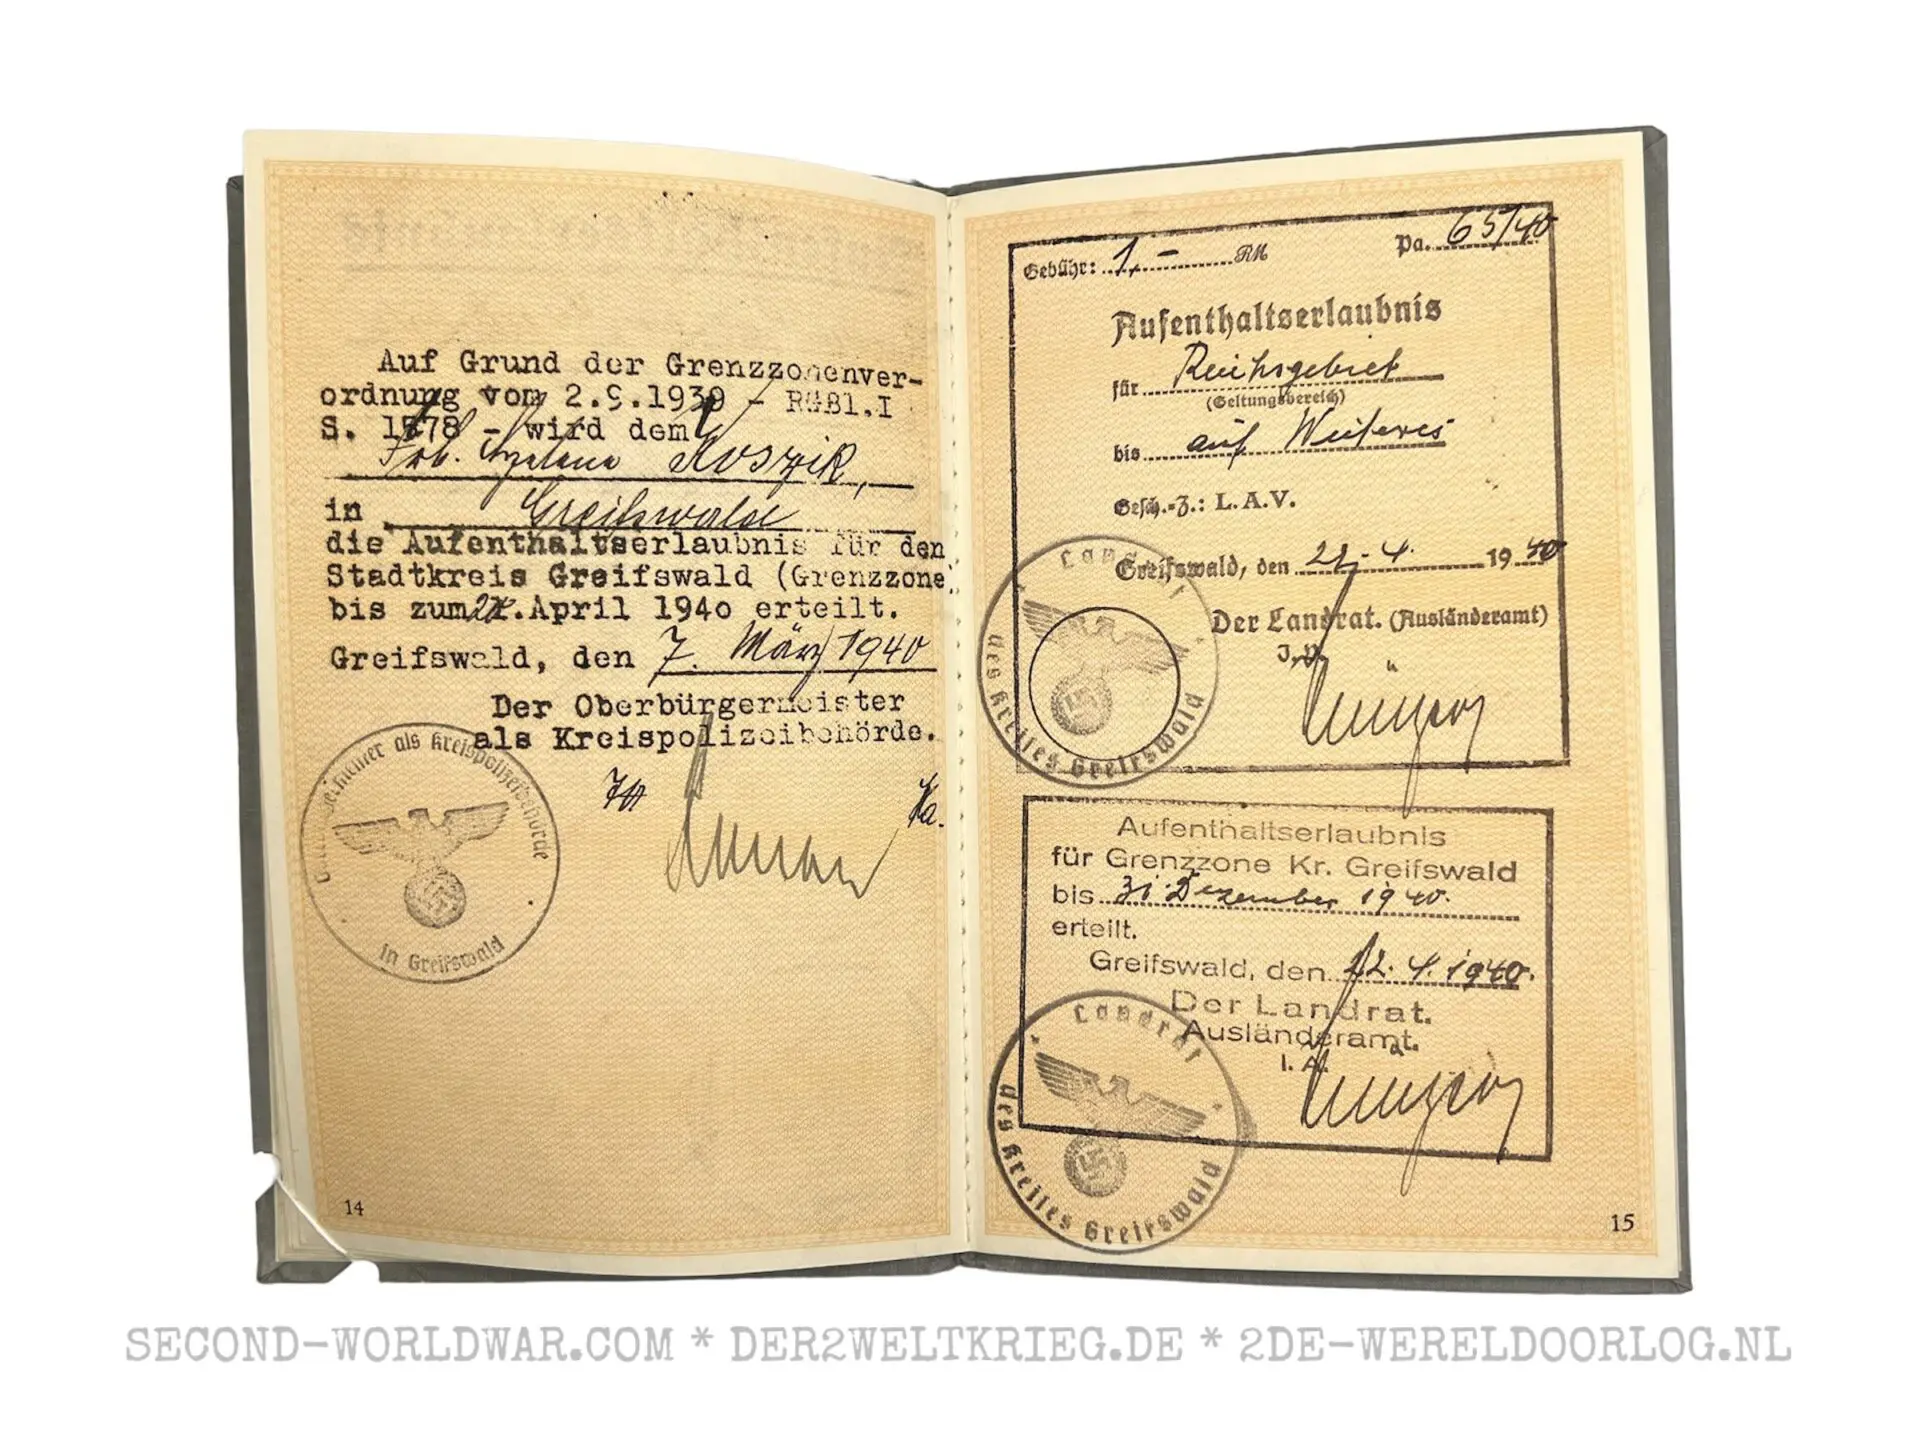 Auf Grund der Grenzzonenver-
ordnung vom 2.9.1939 - RGBl.I
S. 1578 - wird dem
Koszik,
in Greifswald
die Aufenthaltserlaubnis für den
Stadtkreis Greifswald (Grenzzone)
bis zum April 1940 erteilt.
Greifswald, den 7. März 1940
Der Oberbürgermeister
als Kreispolizeibehörde.
als Kreispolizeibehörde
in Greifswald
14
Gebühr: 1,- RM Pa. 65/40
Aufenthaltserlaubnis
für Reichsgebiet
(Geltungsbereich)
bis auf Weiteres
Gesch.-Z.: L.A.V.
Greifswald, den 22.4. 1940
Der Landrat. (Ausländeramt)
Landrat
des Kreises Greifswald
Aufenthaltserlaubnis
für Grenzzone Kr. Greifswald
bis 31. Dezember 1940.
erteilt.
Greifswald, den 22.4.1940.
Der Landrat.
Ausländeramt.
I. A.
Landrat
des Kreises Greifswald
15
SECOND-WORLDWAR.COM * DER2WELTKRIEG.DE * 2DE-WERELDOORLOG.NL